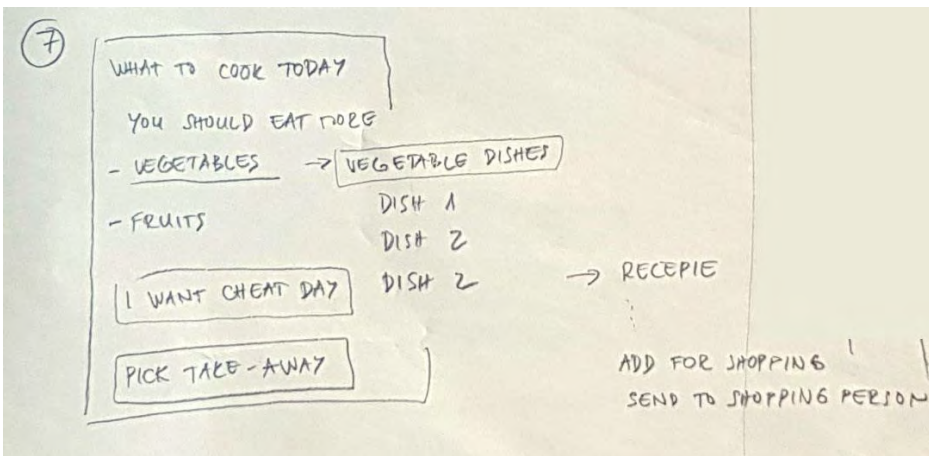 7
WHAT TO COOK TODAY
YOU SHOULD EAT MORE
- VEGETABLES → VEGETABLE DISHES
DISH 1
- FRUITS
DISH 2
DISH 2 → RECEPIE
I WANT CHEAT DAY
PICK TAKE-AWAY
ADD FOR SHOPPING
SEND TO SHOPPING PERSON